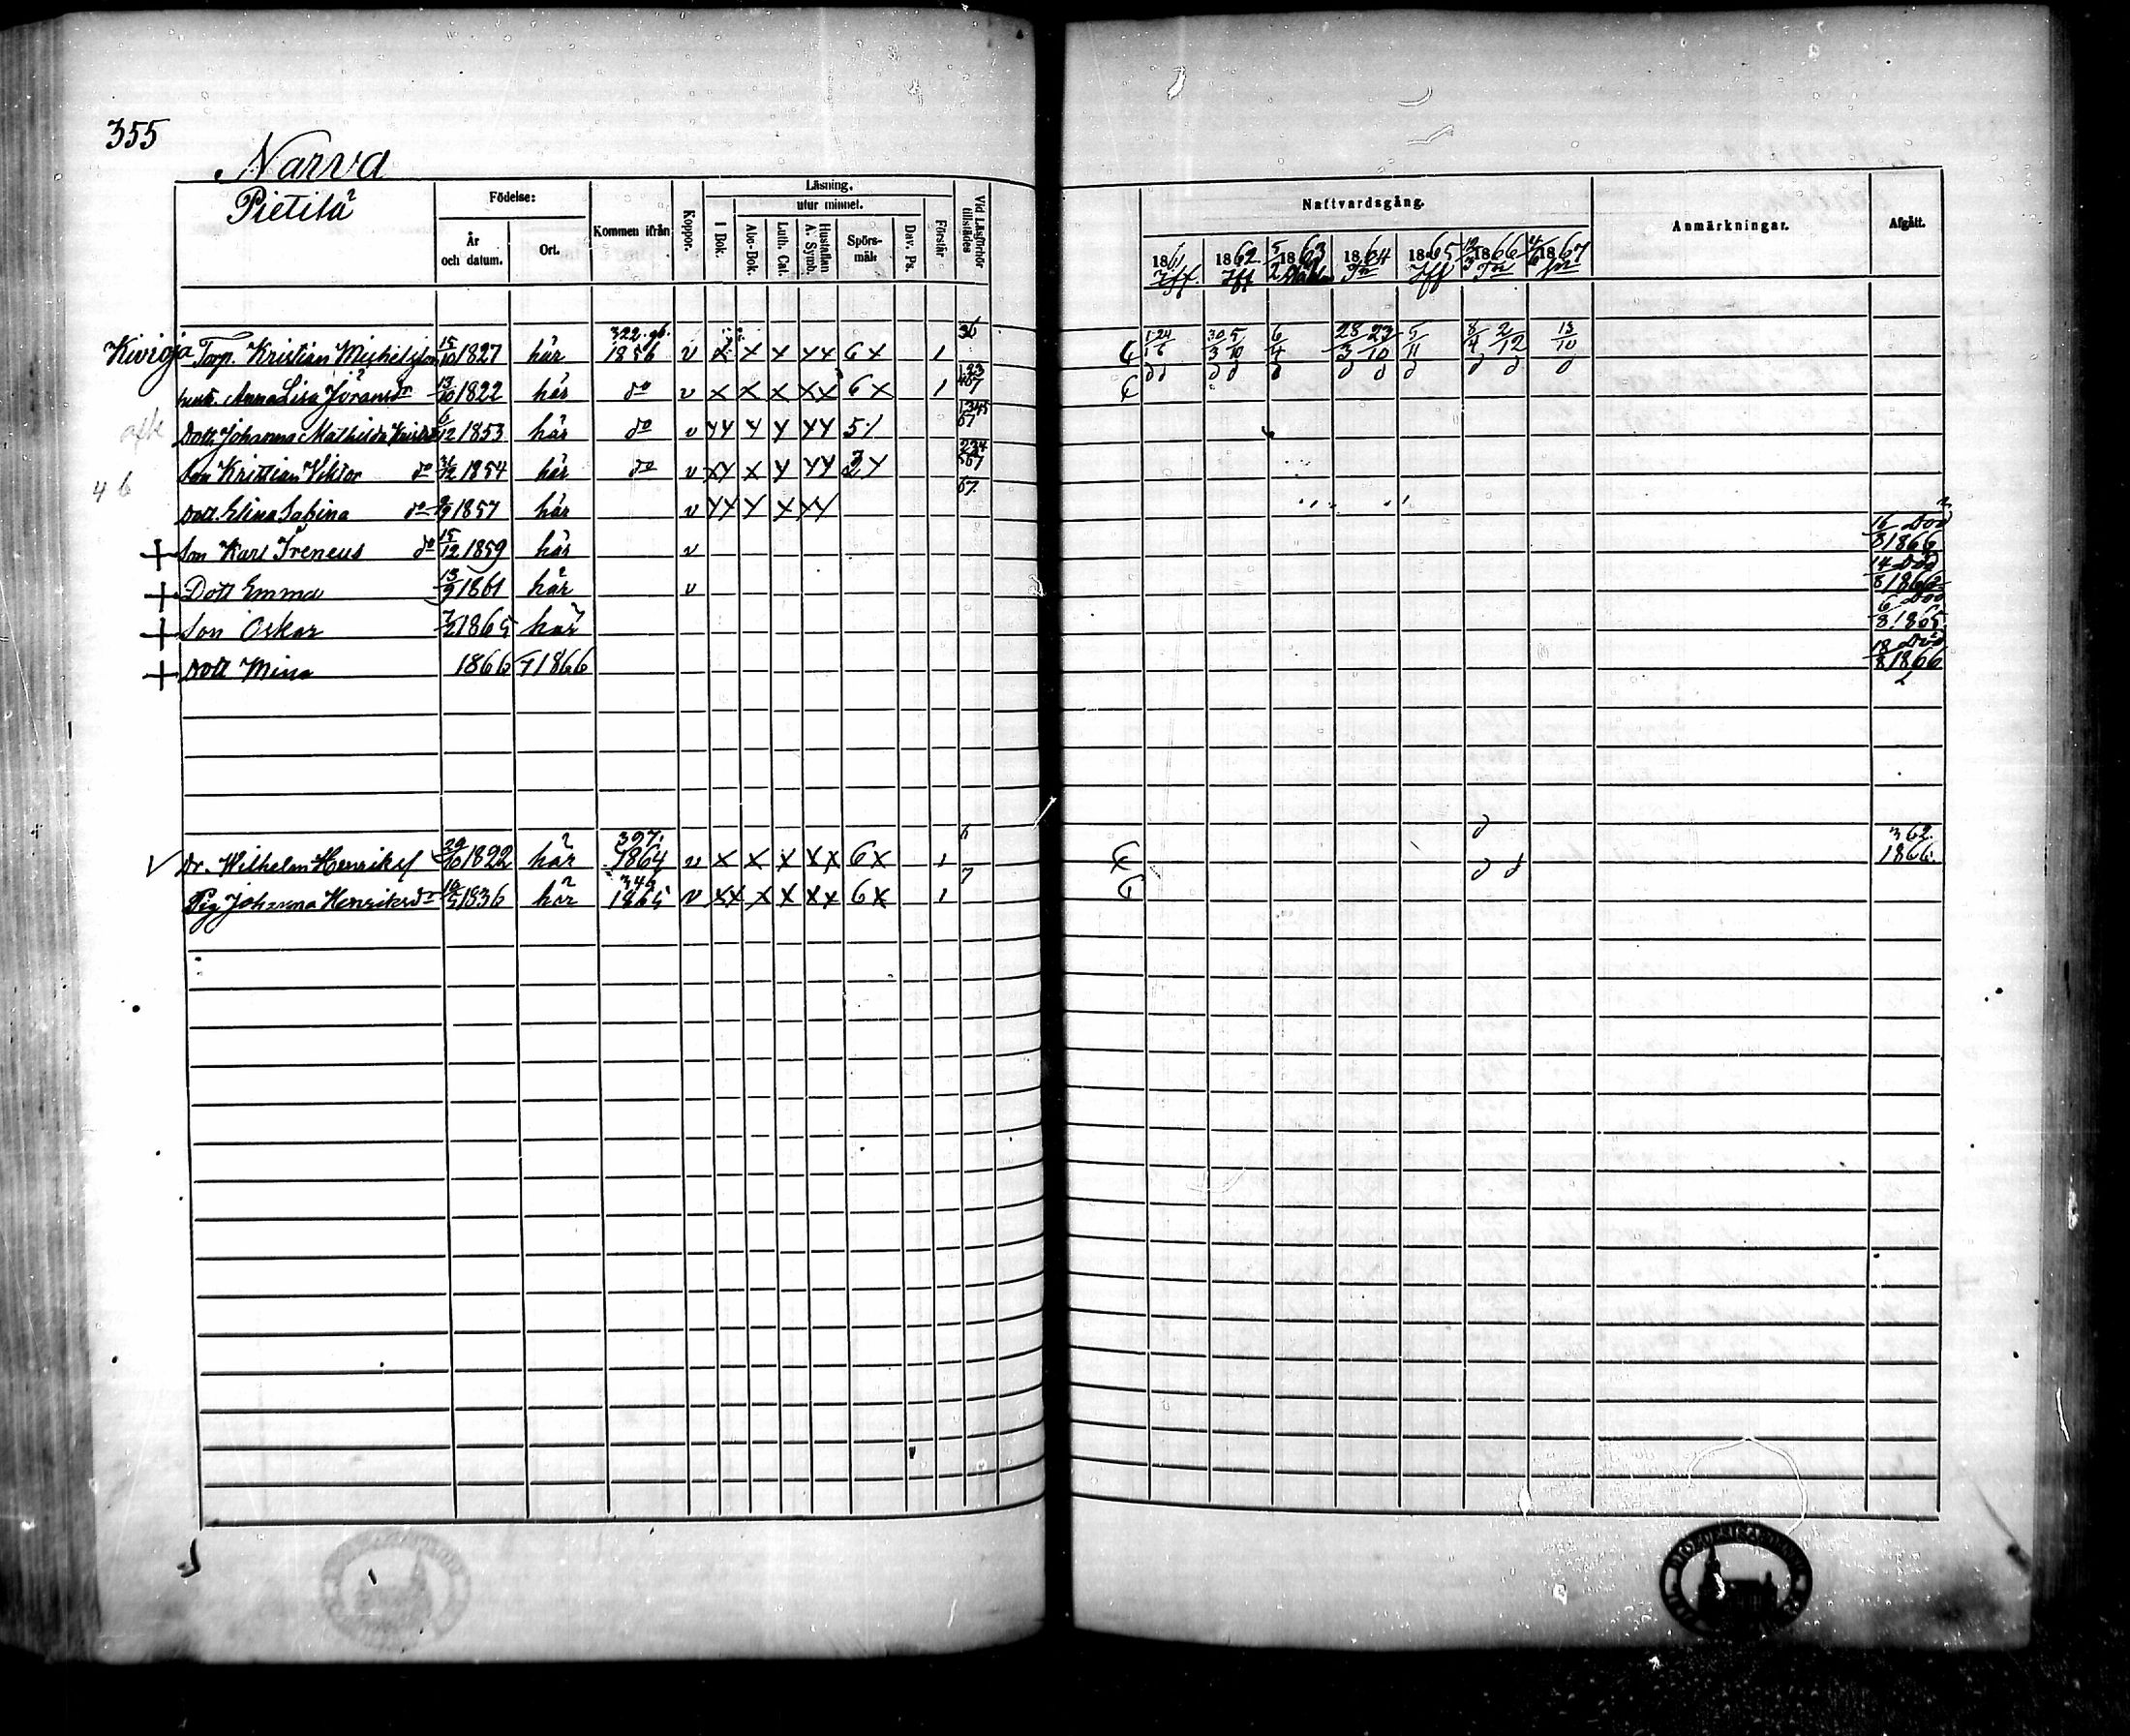 355
Narva
Pietilä
Födelse:
År och datum.
Ort.
Kommen ifrån
Koppor.
Läsning.
utur minnet.
I Bok.
Abc-Bok.
Luth. Cat.
Hustaflan A. Symb.
Spörs-mål.
Dav. Ps.
Förstår
Vid Läsförhör tillstädes
Nattvardsgång.
1861 1862 5/2 1863 1864 1865 1866 1867
Anmärkningar.
Afgått.
Kivioja Torp. Kristian Michelsson 15/10 1827 här 322. 1856 v x x x xx 6x 1 30 5 6/4 28 23 5/11 8/4 2/12 13/10
hust. Anna Lisa Jöransdr 13/10 1822 här do v x x x xx 6x 1
Dott. Johanna Mathilda 6/12 1853 här do v xx x x xx 51
Son Kristian Viktor do 31/12 1854 här do v xx x x xx
4 6
Dott. Elina Sabina do 9/9 1857 här v xx x x xx
+ Son Karl Ireneus do 15/12 1859 här v 16/8 Död 1866
+ Dott Emma 13/9 1861 här v 14/8 Död 1866
+ Son Oskar 7/2 1865 här 6/8 Död 1865.
+ Dott Mina 1866 † 1866 18/8 Död 1866
v Dr. Wilhelm Henrikss 29/10 1822 här 397. 1864 v x x x xx 6x 1 6 362. 1866.
Pig Johanna Henriksdr 1836 här 1865 v xx x x xx 6x 1 7